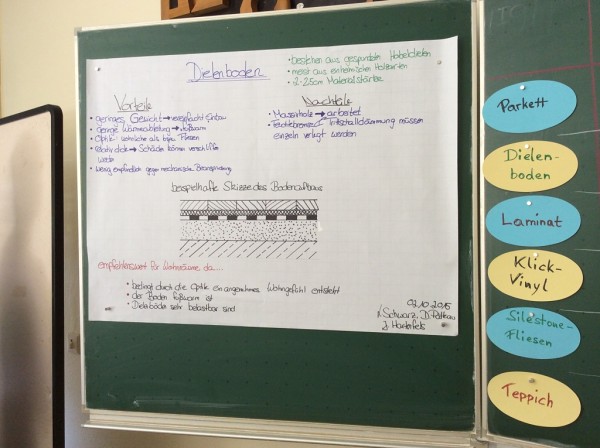 Dielenboden
• bestehen aus gespundeten Hobeldielen
• meist aus einheimischen Holzarten
• 2-2,5cm Materialstärke
Vorteile
• geringes Gewicht → vereinfacht Einbau
• Geringe Wärmeableitung → fußwarm
• Optik wohnliche als bspw. Fliesen
• Relativ dick → Schäde können verschliffen
werden
• wenig empfindlich gegen mechanische Beanspruchung
Nachteile
• Massivholz → arbeitet
• Trittschalldämmung müssen
einzeln verlegt werden
beispielhafte Skizze des Bodenaufbaus
empfehlenswert für Wohnräume da...
• bedingt durch die Optik ein angenehmes Wohngefühl entsteht
• der Boden fußwarm ist
• Dielenböden sehr belastbar sind
02.10.2015
Schwarz, D.
J.
Parkett
Dielen-
boden
Laminat
Klick-
Vinyl
Silestone-
Fliesen
Teppich